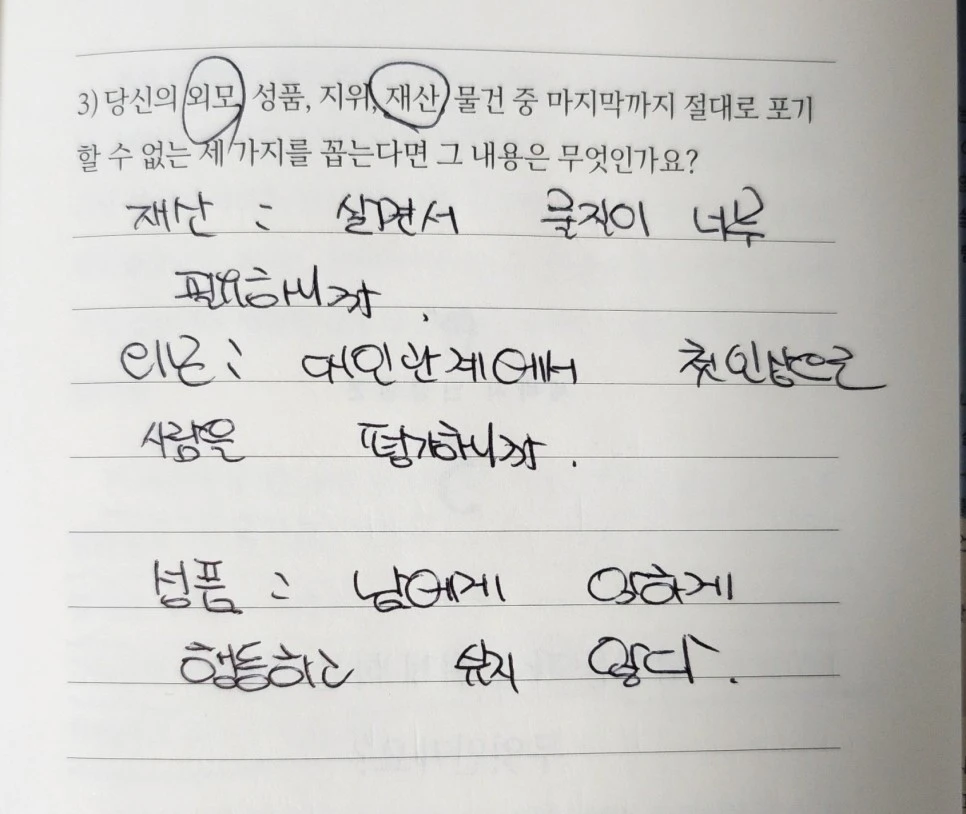 3) 당신의 외모, 성품, 지위, 재산, 물건 중 마지막까지 절대로 포기
할 수 없는 세 가지를 꼽는다면 그 내용은 무엇인가요?
재산 : 살면서 물질이 너무
필요하니까,
외모 : 대인관계에서 첫인상으로
사람을 평가하니까.
성품 : 남에게 악하게
행동하고 싶지 않다.